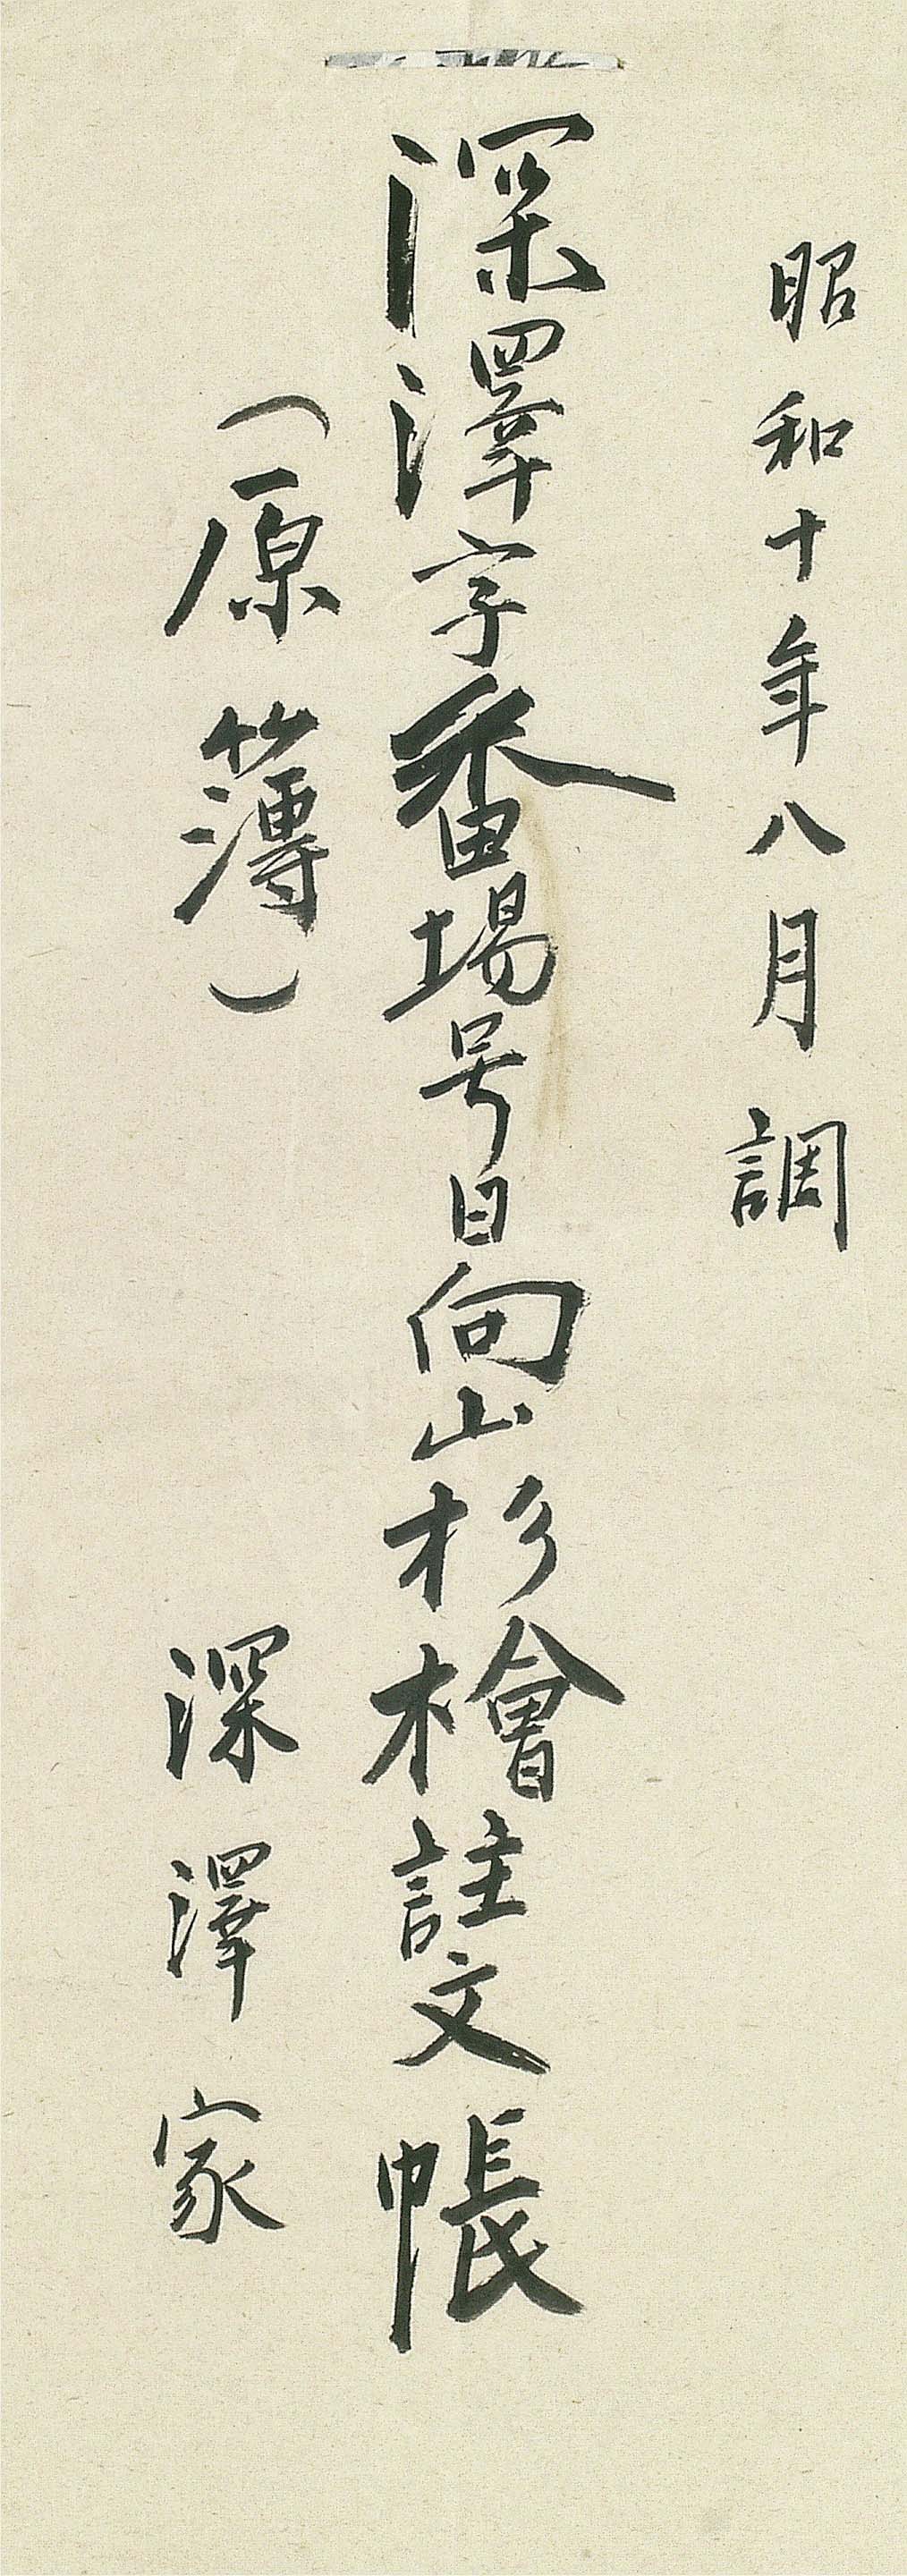 昭和十年八月調
深澤字番場号日向山杉檜註文帳
（原簿）
深澤家